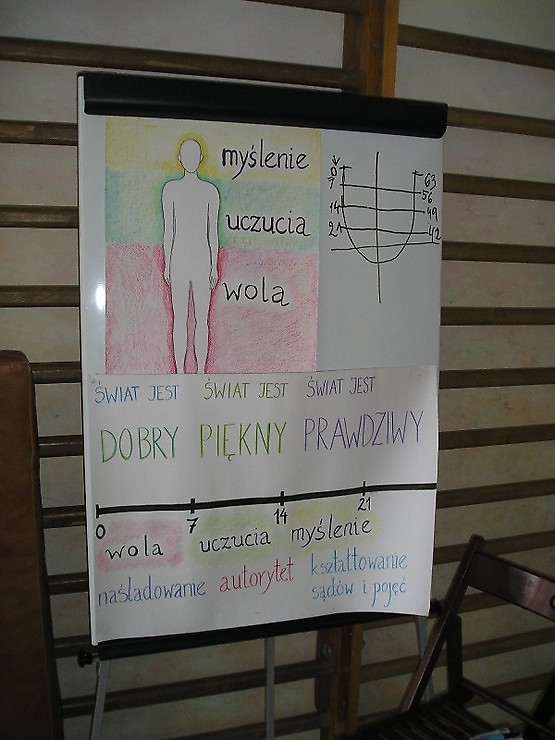 myślenie
uczucia
wola
0 63
7 56
14 49
21 42
ŚWIAT JEST ŚWIAT JEST ŚWIAT JEST
DOBRY PIĘKNY PRAWDZIWY
0 7 14 21
wola uczucia myślenie
naśladowanie autorytet kształtowanie
sądów i pojęć